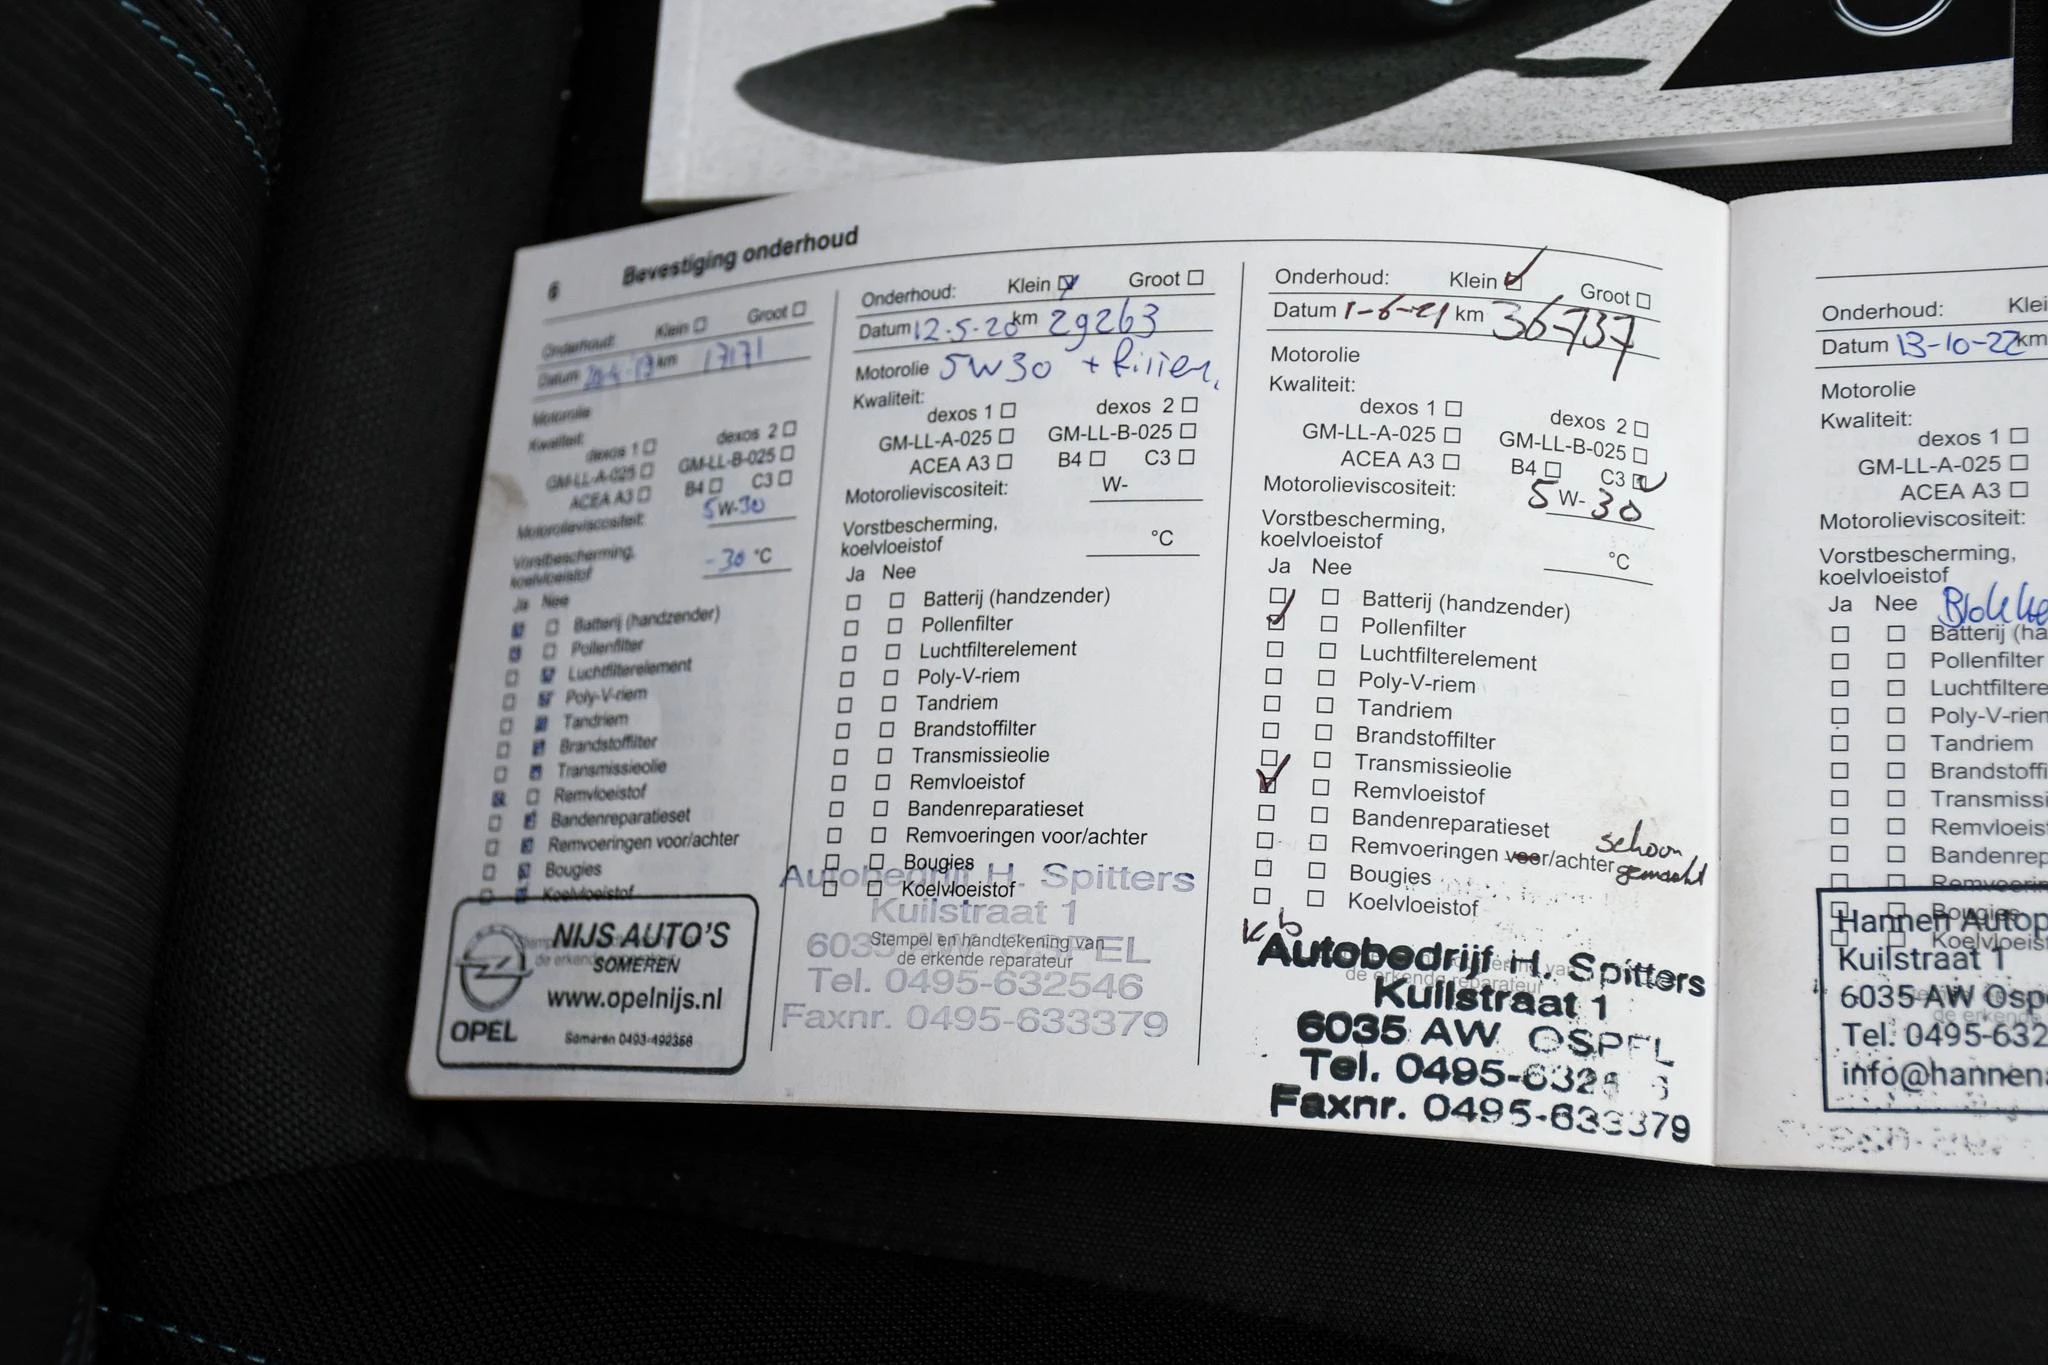 6 Bevestiging onderhoud
Onderhoud: Klein Groot
Datum km 17171
Motorolie
Kwaliteit:
dexos 1 dexos 2
GM-LL-A-025 GM-LL-B-025
ACEA A3 B4 C3
Motorolieviscositeit: 5 W-30
Vorstbescherming,
koelvloeistof -30 °C
Ja Nee
Batterij (handzender)
Pollenfilter
Luchtfilterelement
Poly-V-riem
Tandriem
Brandstoffilter
Transmissieolie
Remvloeistof
Bandenreparatieset
Remvoeringen voor/achter
Bougies
Koelvloeistof
NIJS AUTO'S
SOMEREN
www.opelnijs.nl
OPEL
Someren 0493-492356
Onderhoud: Klein Groot
Datum 12-5-20 km 29263
Motorolie 5W30 +
Kwaliteit:
dexos 1 dexos 2
GM-LL-A-025 GM-LL-B-025
ACEA A3 B4 C3
Motorolieviscositeit: W-
Vorstbescherming,
koelvloeistof °C
Ja Nee
Batterij (handzender)
Pollenfilter
Luchtfilterelement
Poly-V-riem
Tandriem
Brandstoffilter
Transmissieolie
Remvloeistof
Bandenreparatieset
Remvoeringen voor/achter
Bougies
Koelvloeistof
Autobedrijf H. Spitters
Kuilstraat 1
6035 AW OSPEL
Stempel en handtekening van
de erkende reparateur
Tel. 0495-632546
Faxnr. 0495-633379
Onderhoud: Klein Groot
Datum 1-6-21 km 36737
Motorolie
Kwaliteit:
dexos 1 dexos 2
GM-LL-A-025 GM-LL-B-025
ACEA A3 B4 C3
Motorolieviscositeit: 5 W-30
Vorstbescherming,
koelvloeistof °C
Ja Nee
Batterij (handzender)
Pollenfilter
Luchtfilterelement
Poly-V-riem
Tandriem
Brandstoffilter
Transmissieolie
Remvloeistof
Bandenreparatieset
Remvoeringen voor/achter schoon gemaakt
Bougies
Koelvloeistof
Kb
Autobedrijf H. Spitters
de erkende reparateur
Kuilstraat 1
6035 AW OSPEL
Tel. 0495-632
Faxnr. 0495-633379
Onderhoud: Klei
Datum 13-10-22 km
Motorolie
Kwaliteit:
dexos 1
GM-LL-A-025
ACEA A3
Motorolieviscositeit:
Vorstbescherming,
koelvloeistof
Ja Nee
Batterij (ha
Pollenfilter
Luchtfiltere
Poly-V-rien
Tandriem
Brandstoffi
Transmissi
Remvloeist
Bandenrep
Remvoerin
Bougies
Koelvloeist
Hannen Autop
Kuilstraat 1
6035 AW Ospe
Tel. 0495-632
info@hannena